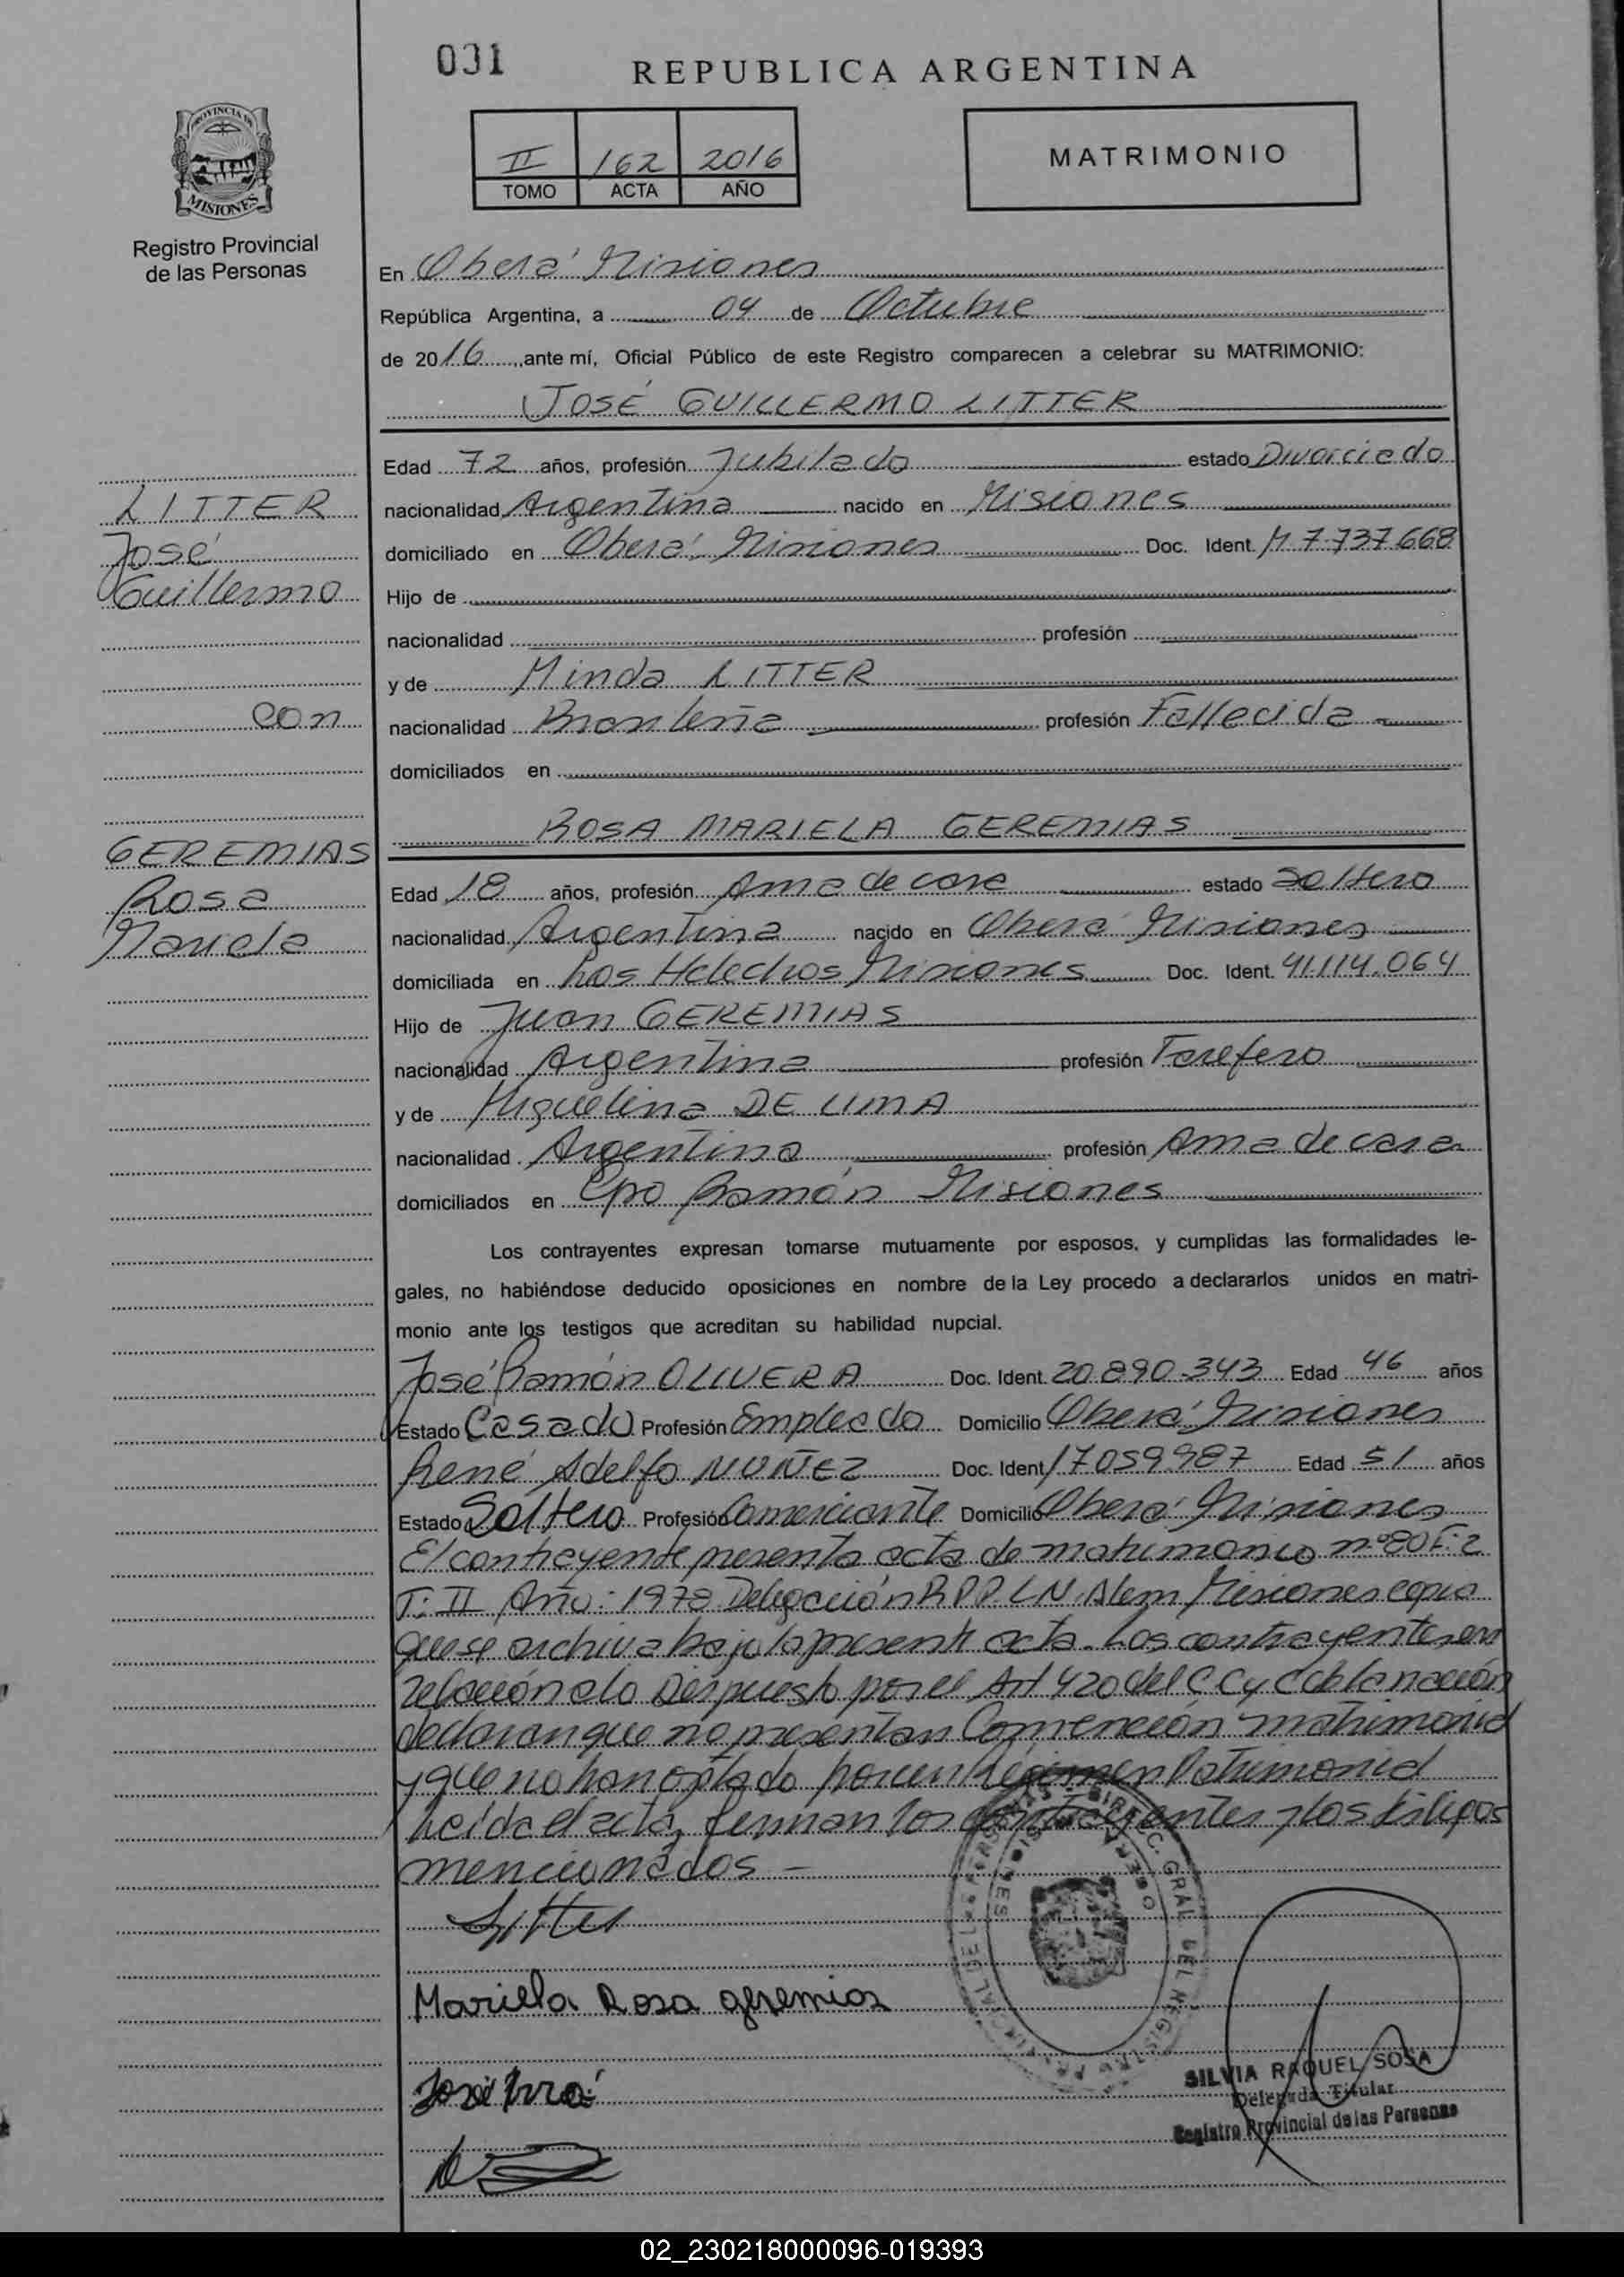 031
REPUBLICA ARGENTINA
II 162 2016
TOMO ACTA AÑO
MATRIMONIO
PROVINCIA DE
MISIONES
Registro Provincial
de las Personas
En Oberá Misiones
República Argentina, a 04 de Octubre
de 2016, ante mí, Oficial Público de este Registro comparecen a celebrar su MATRIMONIO:
JOSÉ GUILLERMO LITTER
Edad 72 años, profesión Jubilado estado Divorciado
LITTER
nacionalidad Argentina nacido en Misiones
José
domiciliado en Oberá Misiones Doc. Ident. M 7.737.668
Guillermo
Hijo de
nacionalidad profesión
y de Minda LITTER
con
nacionalidad Brasileña profesión Fallecida
domiciliados en
ROSA MARIELA GEREMIAS
GEREMIAS
Edad 18 años, profesión Ama de casa estado Soltera
Rosa
nacionalidad Argentina nacido en Oberá Misiones
Mariela
domiciliada en Los Helechos Misiones Doc. Ident. 41.114.064
Hijo de Juan GEREMIAS
nacionalidad Argentina profesión Tarefero
y de Miguelina DE LIMA
nacionalidad Argentina profesión Ama de casa
domiciliados en Cpo Ramón Misiones
Los contrayentes expresan tomarse mutuamente por esposos, y cumplidas las formalidades le-
gales, no habiéndose deducido oposiciones en nombre de la Ley procedo a declararlos unidos en matri-
monio ante los testigos que acreditan su habilidad nupcial.
José Ramón OLIVERA Doc. Ident. 20.890.343 Edad 46 años
Estado Casado Profesión Empleado Domicilio Oberá Misiones
René Adelfo NUÑEZ Doc. Ident 17059987 Edad 51 años
Estado Soltero Profesión Comerciante Domicilio Oberá Misiones
El contrayente presenta acta de matrimonio nº 80 F: 2
T: II Año: 1978 Delegación R.P.P. L.N. Alem Misiones copia
que se archiva bajo la presente acta. Los contrayentes en
relación a lo Dispuesto por el Art 420 del C C y C de la nación
declaran que no presentan Convención matrimonial
y que no han optado por un Régimen Patrimonial
Leída el acta, firman los contrayentes y los testigos
mencionados -
Litter
Mariella Rosa geremias
SILVIA RAQUEL SOSA
Delegada Titular
Registro Provincial de las Personas
02_230218000096-019393